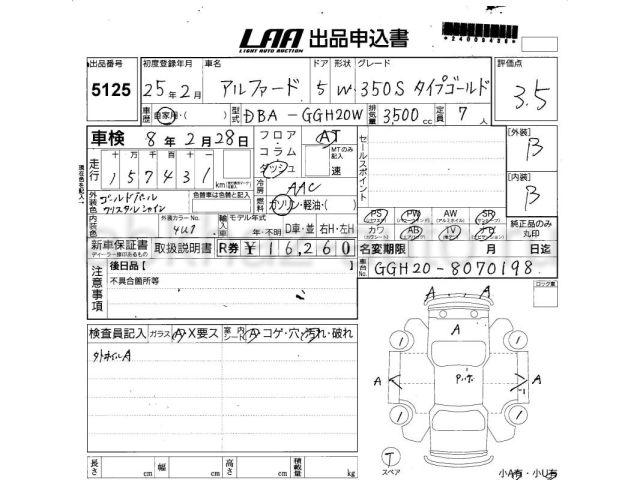 LAA 出品申込書
LIGHT AUTO AUCTION
出品番号 初度登録年月 車名 ドア 形状 グレード 評価点
5125 25年2月 アルファード 5 W 350S タイプゴールド 3.5
車歴 自家用・( ) 型式 DBA-GGH20W 排気量 3,500 cc 定員 7 人
車検 8年2月28日 フロア・コラム・ダッシュ AT セールスポイント [外装] B
MTのみ記入 速
走行 十 万 千 百 十 一
157431 km
冷房 AAC [内装] B
外装色 ゴールドパール 色替車は色番と記入 燃料 ガソリン・軽油・( )
クリスタルシャイン
内装色 外装カラーNo. 輸入車 モデル年式 PS PW AW SR
4U1 年・不明 D車・並 右H・左H カワ AB TV 純正品のみ丸印
新車保証書 取扱説明書 R券 ¥16,260 名変期限 月 日迄
ディーラー捺印あるもの
車台No. GGH20-8070198
注意事項 後日品 [ ] ロック番
不具合箇所等
検査員記入 ガラス A・X要ス 室内シート A・コゲ・穴・汚れ・破れ
タトホイルA
A A
A
A A
スペア
長さ cm 幅 cm 高さ cm 積載量 kg
小A有・小U有